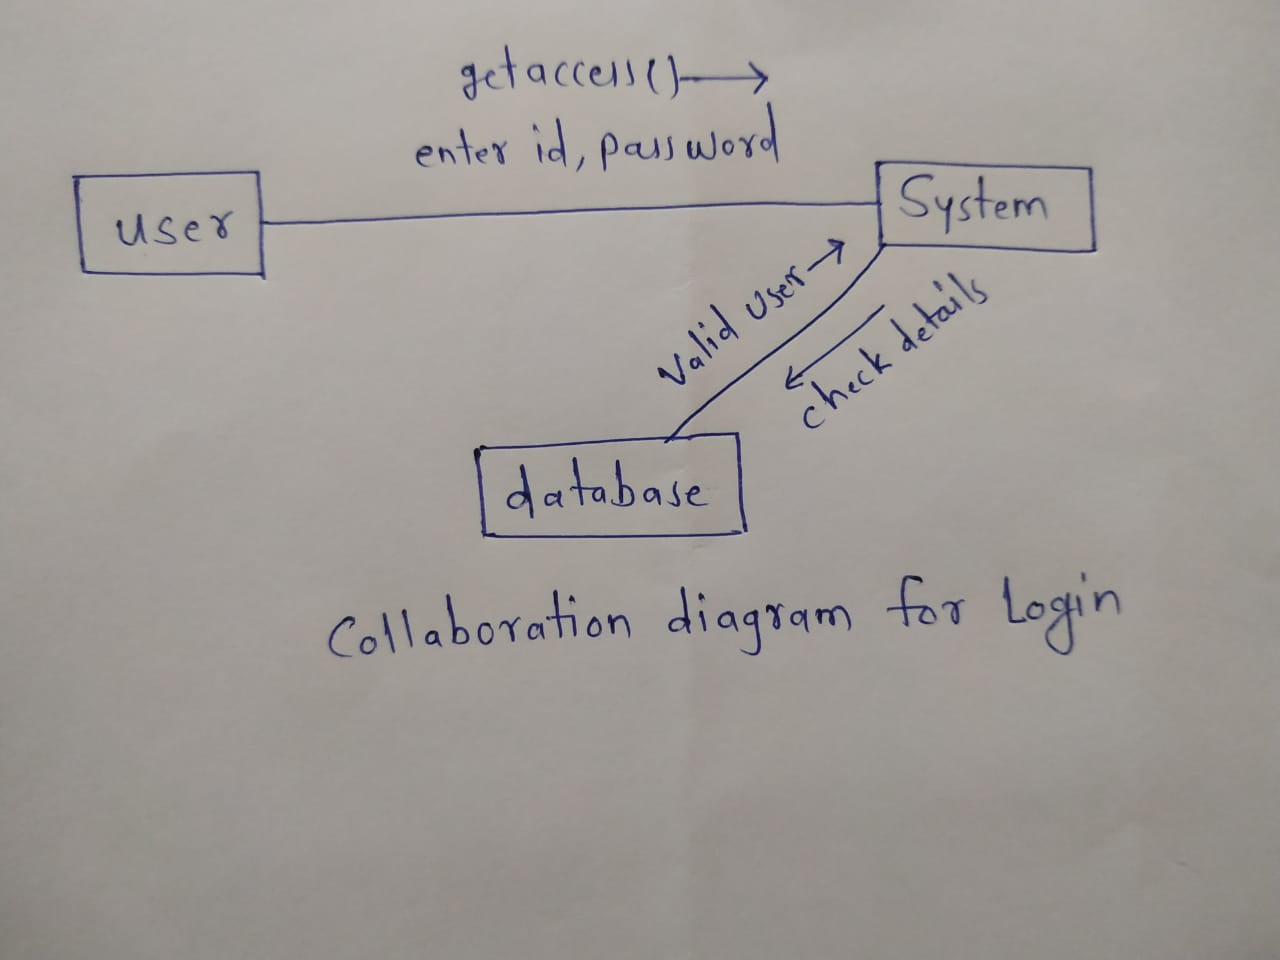 getaccess()
enter id, password
user
System
Valid User
check details
database
Collaboration diagram for Login